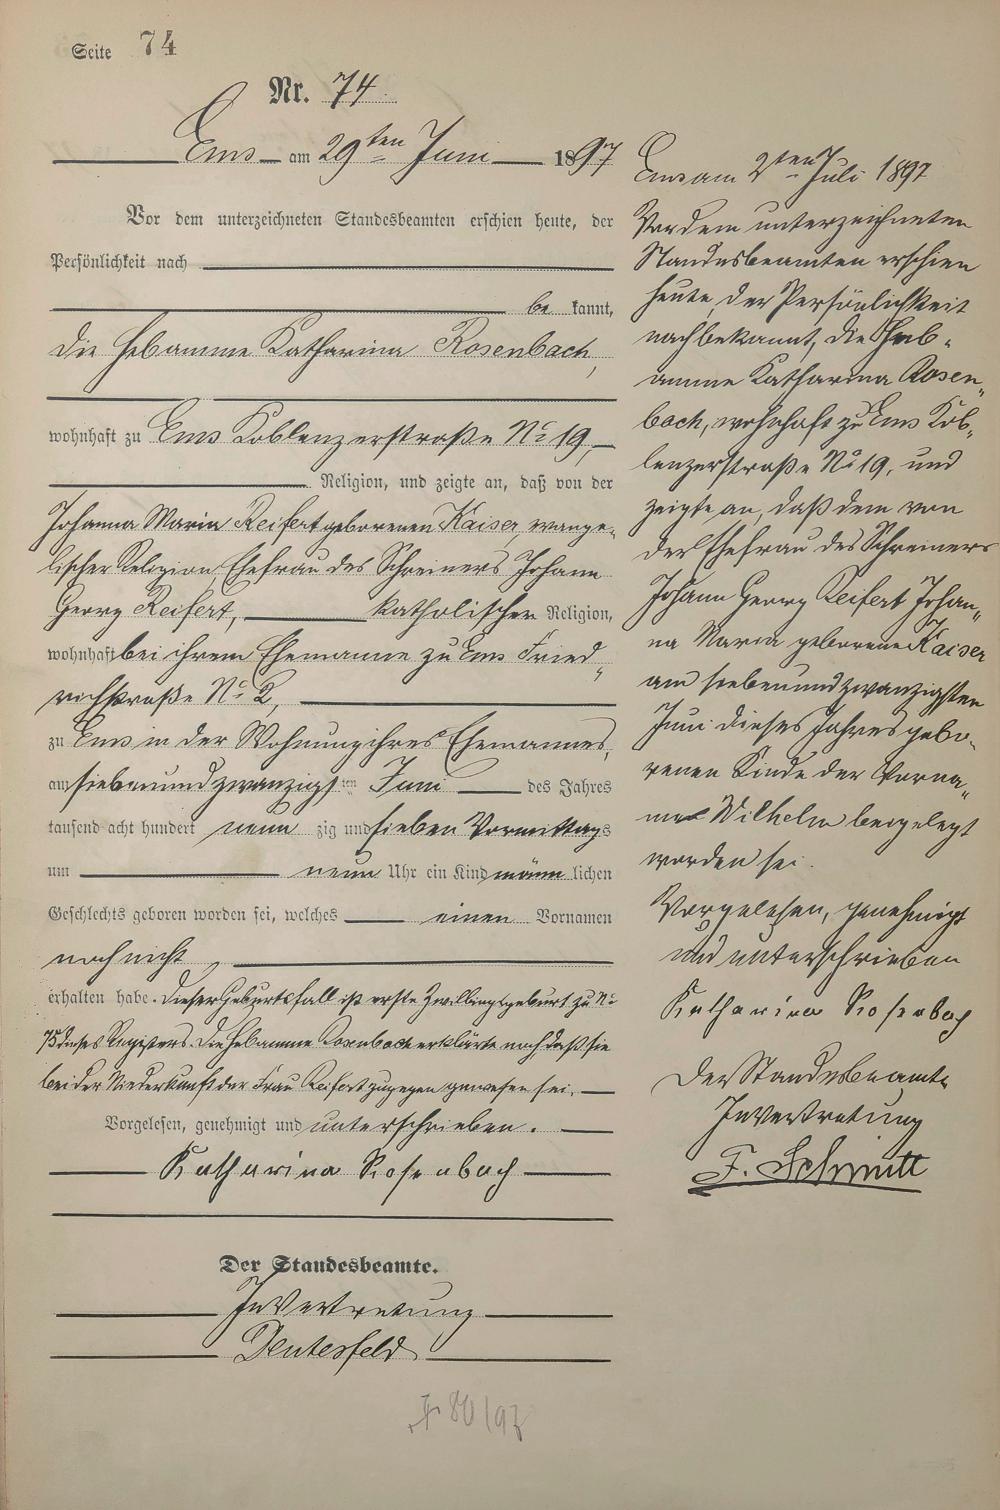 Seite 74
Nr. 74.
Ems am 29ten Juni 1897
Vor dem unterzeichneten Standesbeamten erschien heute, der
Persönlichkeit nach
be kannt,
die Hebamme Katharina Rosenbach,
wohnhaft zu Ems Koblenzerstraße No 19,
Religion, und zeigte an, daß von der
Johanna Maria Reifert geborenen Kaiser, evange-
lischer Religion, Ehefrau des Schreiners Johann
Georg Reifert, katholischer Religion,
wohnhaft bei ihrem Ehemanne zu Ems Fried„
richstraße No 2,
zu Ems in der Wohnung ihres Ehemannes,
am siebenundzwanzigsten Juni des Jahres
tausend acht hundert neun zig und sieben Vormittags
um neun Uhr ein Kind männ lichen
Geschlechts geboren worden sei, welches einen Vornamen
noch nicht
erhalten habe. Dieser Geburtsfall ist erste Zwillingsgeburt zu No
75 dieses Registers. Die Hebamme Rosenbach erklärte noch daß sie
bei der Niederkunft der Frau Reifert zugegen gewesen sei.
Vorgelesen, genehmigt und unterschrieben.
Katharina Rosenbach
Der Standesbeamte.
In Vertretung
Deutesfeld
80/97
Ems am 2ten Juli 1897
Vor dem unterzeichneten
Standesbeamten erschien
heute, der Persönlichkeit
nach bekannt, die Heb-
amme Katharina Rosen„
bach, wohnhaft zu Ems Kob„
lenzerstraße No 19, und
zeigte an, daß dem von
der Ehefrau des Schreiners
Johann Georg Reifert Johan„
na Maria geborene Kaiser
am siebenundzwanzigsten
Juni dieses Jahres gebo-
renen Kinde der Vorna„
me Wilhelm beigelegt
worden sei.
Vorgelesen, genehmigt
und unterschrieben
Katharina Rosenbach
Der Standesbeamte
In Vertretung
F. Schmitt